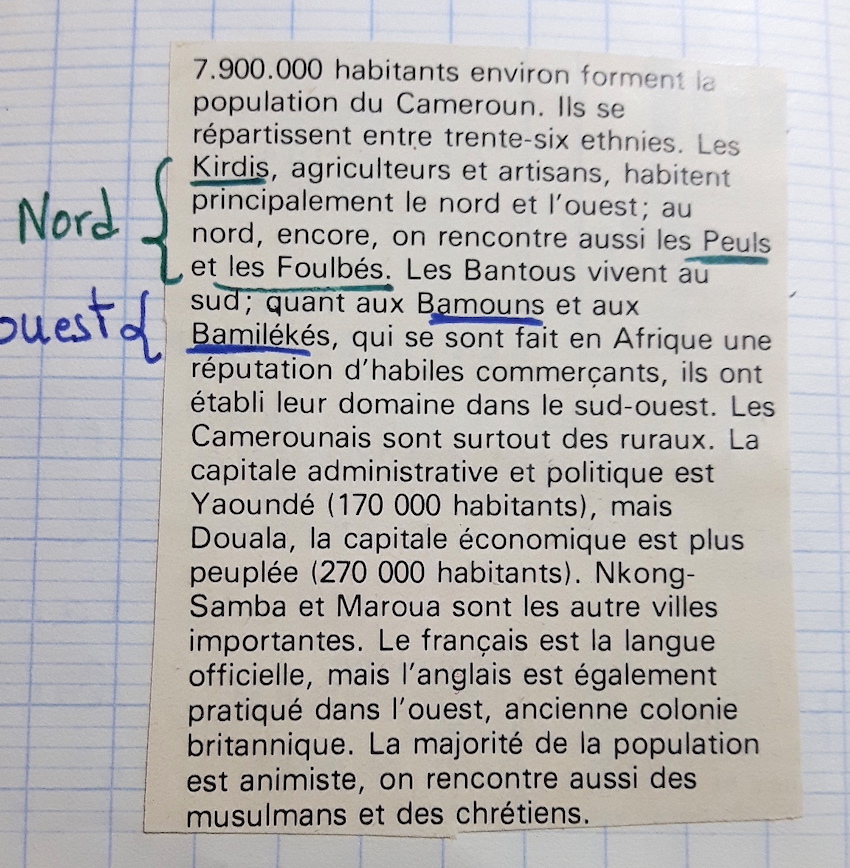 7.900.000 habitants environ forment la
population du Cameroun. Ils se
répartissent entre trente-six ethnies. Les
Kirdis, agriculteurs et artisans, habitent
principalement le nord et l'ouest; au
Nord
nord, encore, on rencontre aussi les Peuls
et les Foulbés. Les Bantous vivent au
sud; quant aux Bamouns et aux
ouest
Bamilékés, qui se sont fait en Afrique une
réputation d'habiles commerçants, ils ont
établi leur domaine dans le sud-ouest. Les
Camerounais sont surtout des ruraux. La
capitale administrative et politique est
Yaoundé (170 000 habitants), mais
Douala, la capitale économique est plus
peuplée (270 000 habitants). Nkong-
Samba et Maroua sont les autre villes
importantes. Le français est la langue
officielle, mais l'anglais est également
pratiqué dans l'ouest, ancienne colonie
britannique. La majorité de la population
est animiste, on rencontre aussi des
musulmans et des chrétiens.